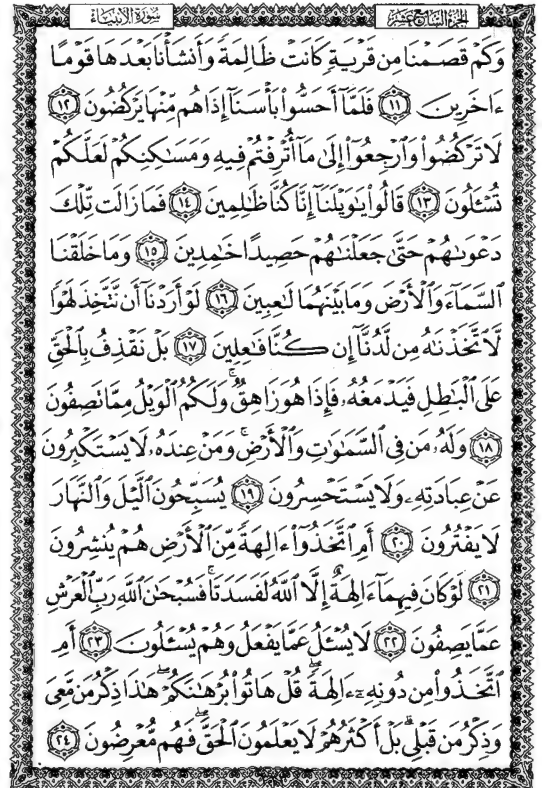 الجزء السابع عشر
سورة الأنبياء
وَكَمْ قَصَمْنَا مِن قَرْيَةٍ كَانَتْ ظَالِمَةً وَأَنشَأْنَا بَعْدَهَا قَوْمًا
ءَاخَرِينَ ۝١١ فَلَمَّآ أَحَسُّوا۟ بَأْسَنَآ إِذَا هُم مِّنْهَا يَرْكُضُونَ ۝١٢
لَا تَرْكُضُوا۟ وَٱرْجِعُوٓا۟ إِلَىٰ مَآ أُتْرِفْتُمْ فِيهِ وَمَسَـٰكِنِكُمْ لَعَلَّكُمْ
تُسْـَٔلُونَ ۝١٣ قَالُوا۟ يَـٰوَيْلَنَآ إِنَّا كُنَّا ظَـٰلِمِينَ ۝١٤ فَمَا زَالَت تِّلْكَ
دَعْوَىٰهُمْ حَتَّىٰ جَعَلْنَـٰهُمْ حَصِيدًا خَـٰمِدِينَ ۝١٥ وَمَا خَلَقْنَا
ٱلسَّمَآءَ وَٱلْأَرْضَ وَمَا بَيْنَهُمَا لَـٰعِبِينَ ۝١٦ لَوْ أَرَدْنَآ أَن نَّتَّخِذَ لَهْوًا
لَّٱتَّخَذْنَـٰهُ مِن لَّدُنَّآ إِن كُنَّا فَـٰعِلِينَ ۝١٧ بَلْ نَقْذِفُ بِٱلْحَقِّ
عَلَى ٱلْبَـٰطِلِ فَيَدْمَغُهُۥ فَإِذَا هُوَ زَاهِقٌ ۚ وَلَكُمُ ٱلْوَيْلُ مِمَّا تَصِفُونَ
۝١٨ وَلَهُۥ مَن فِى ٱلسَّمَـٰوَٰتِ وَٱلْأَرْضِ ۚ وَمَنْ عِندَهُۥ لَا يَسْتَكْبِرُونَ
عَنْ عِبَادَتِهِۦ وَلَا يَسْتَحْسِرُونَ ۝١٩ يُسَبِّحُونَ ٱلَّيْلَ وَٱلنَّهَارَ
لَا يَفْتُرُونَ ۝٢٠ أَمِ ٱتَّخَذُوٓا۟ ءَالِهَةً مِّنَ ٱلْأَرْضِ هُمْ يُنشِرُونَ
۝٢١ لَوْ كَانَ فِيهِمَآ ءَالِهَةٌ إِلَّا ٱللَّهُ لَفَسَدَتَا ۚ فَسُبْحَـٰنَ ٱللَّهِ رَبِّ ٱلْعَرْشِ
عَمَّا يَصِفُونَ ۝٢٢ لَا يُسْـَٔلُ عَمَّا يَفْعَلُ وَهُمْ يُسْـَٔلُونَ ۝٢٣ أَمِ
ٱتَّخَذُوا۟ مِن دُونِهِۦٓ ءَالِهَةً ۖ قُلْ هَاتُوا۟ بُرْهَـٰنَكُمْ ۖ هَـٰذَا ذِكْرُ مَن مَّعِىَ
وَذِكْرُ مَن قَبْلِى ۗ بَلْ أَكْثَرُهُمْ لَا يَعْلَمُونَ ٱلْحَقَّ ۖ فَهُم مُّعْرِضُونَ ۝٢٤